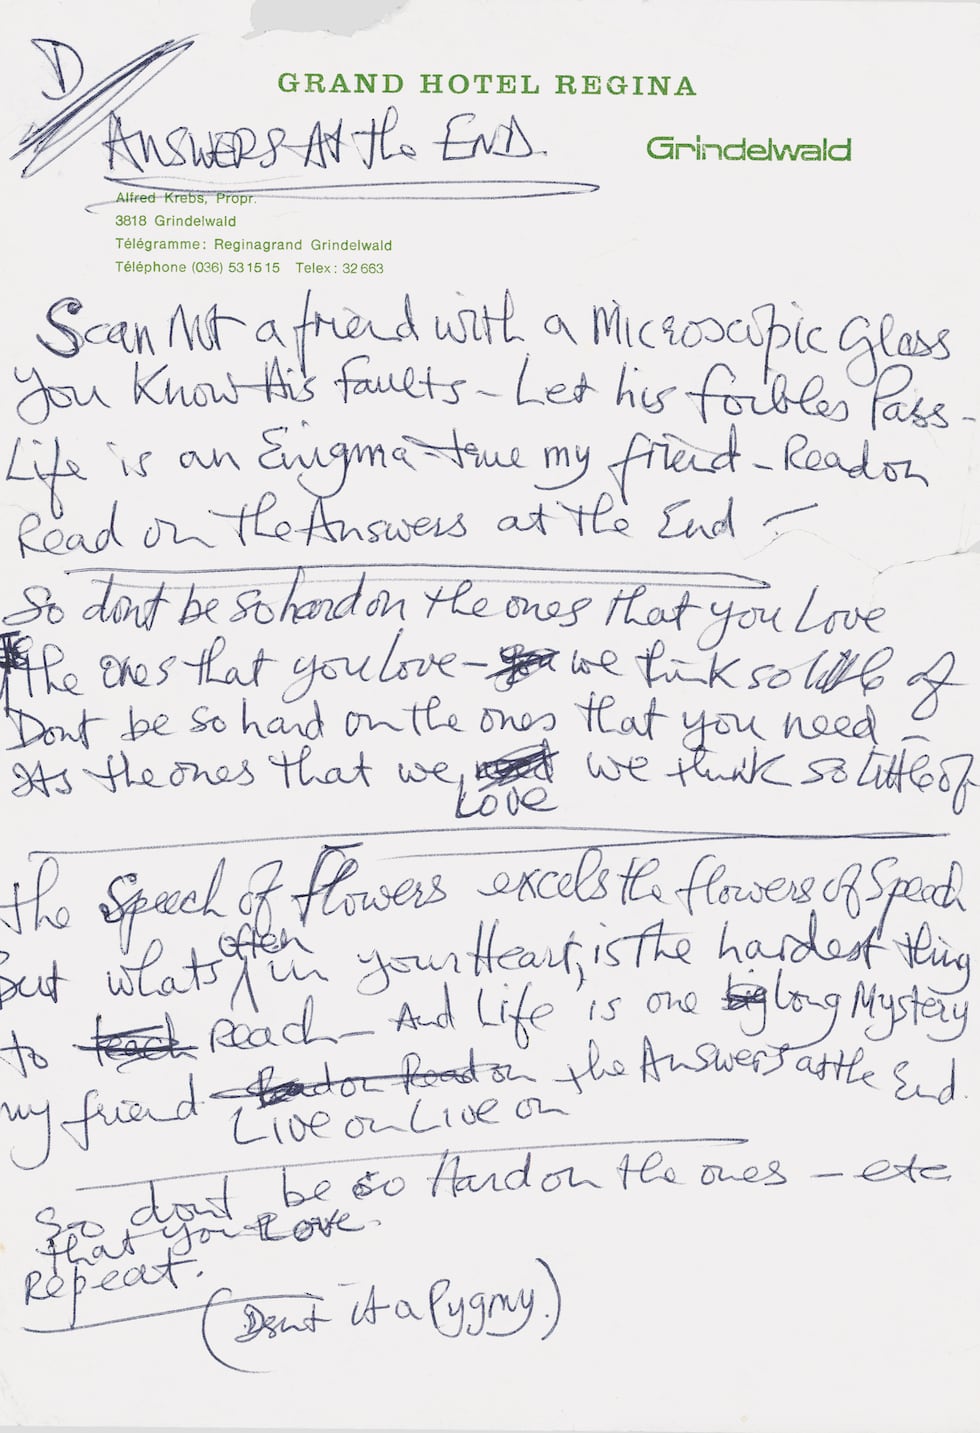 D
GRAND HOTEL REGINA
ANSWERS At the END.
Grindelwald
Alfred Krebs, Propr.
3818 Grindelwald
Télégramme: Reginagrand Grindelwald
Téléphone (036) 53 15 15 Telex: 32 663
Scan Not a friend with a Microscopic Glass
You Know His faults - Let his foibles Pass -
Life is an Enigma - true my friend - Read on
Read on The Answers at the End -
So dont be so hard on the ones that you Love
The ones that you Love - you we think so little of
Dont be so hard on the ones that you need -
Its the ones that we need we think so little of
Love
The Speech of flowers excels the flowers of Speech
often
But whats in your Heart, is the hardest thing
to teach Reach - And Life is one big long Mystery
my friend - Read on Read on the Answers at the End.
Live on Live on
So dont be so Hard on the ones - etc
that you Love.
Repeat.
(Isnt it a Pygmy.)